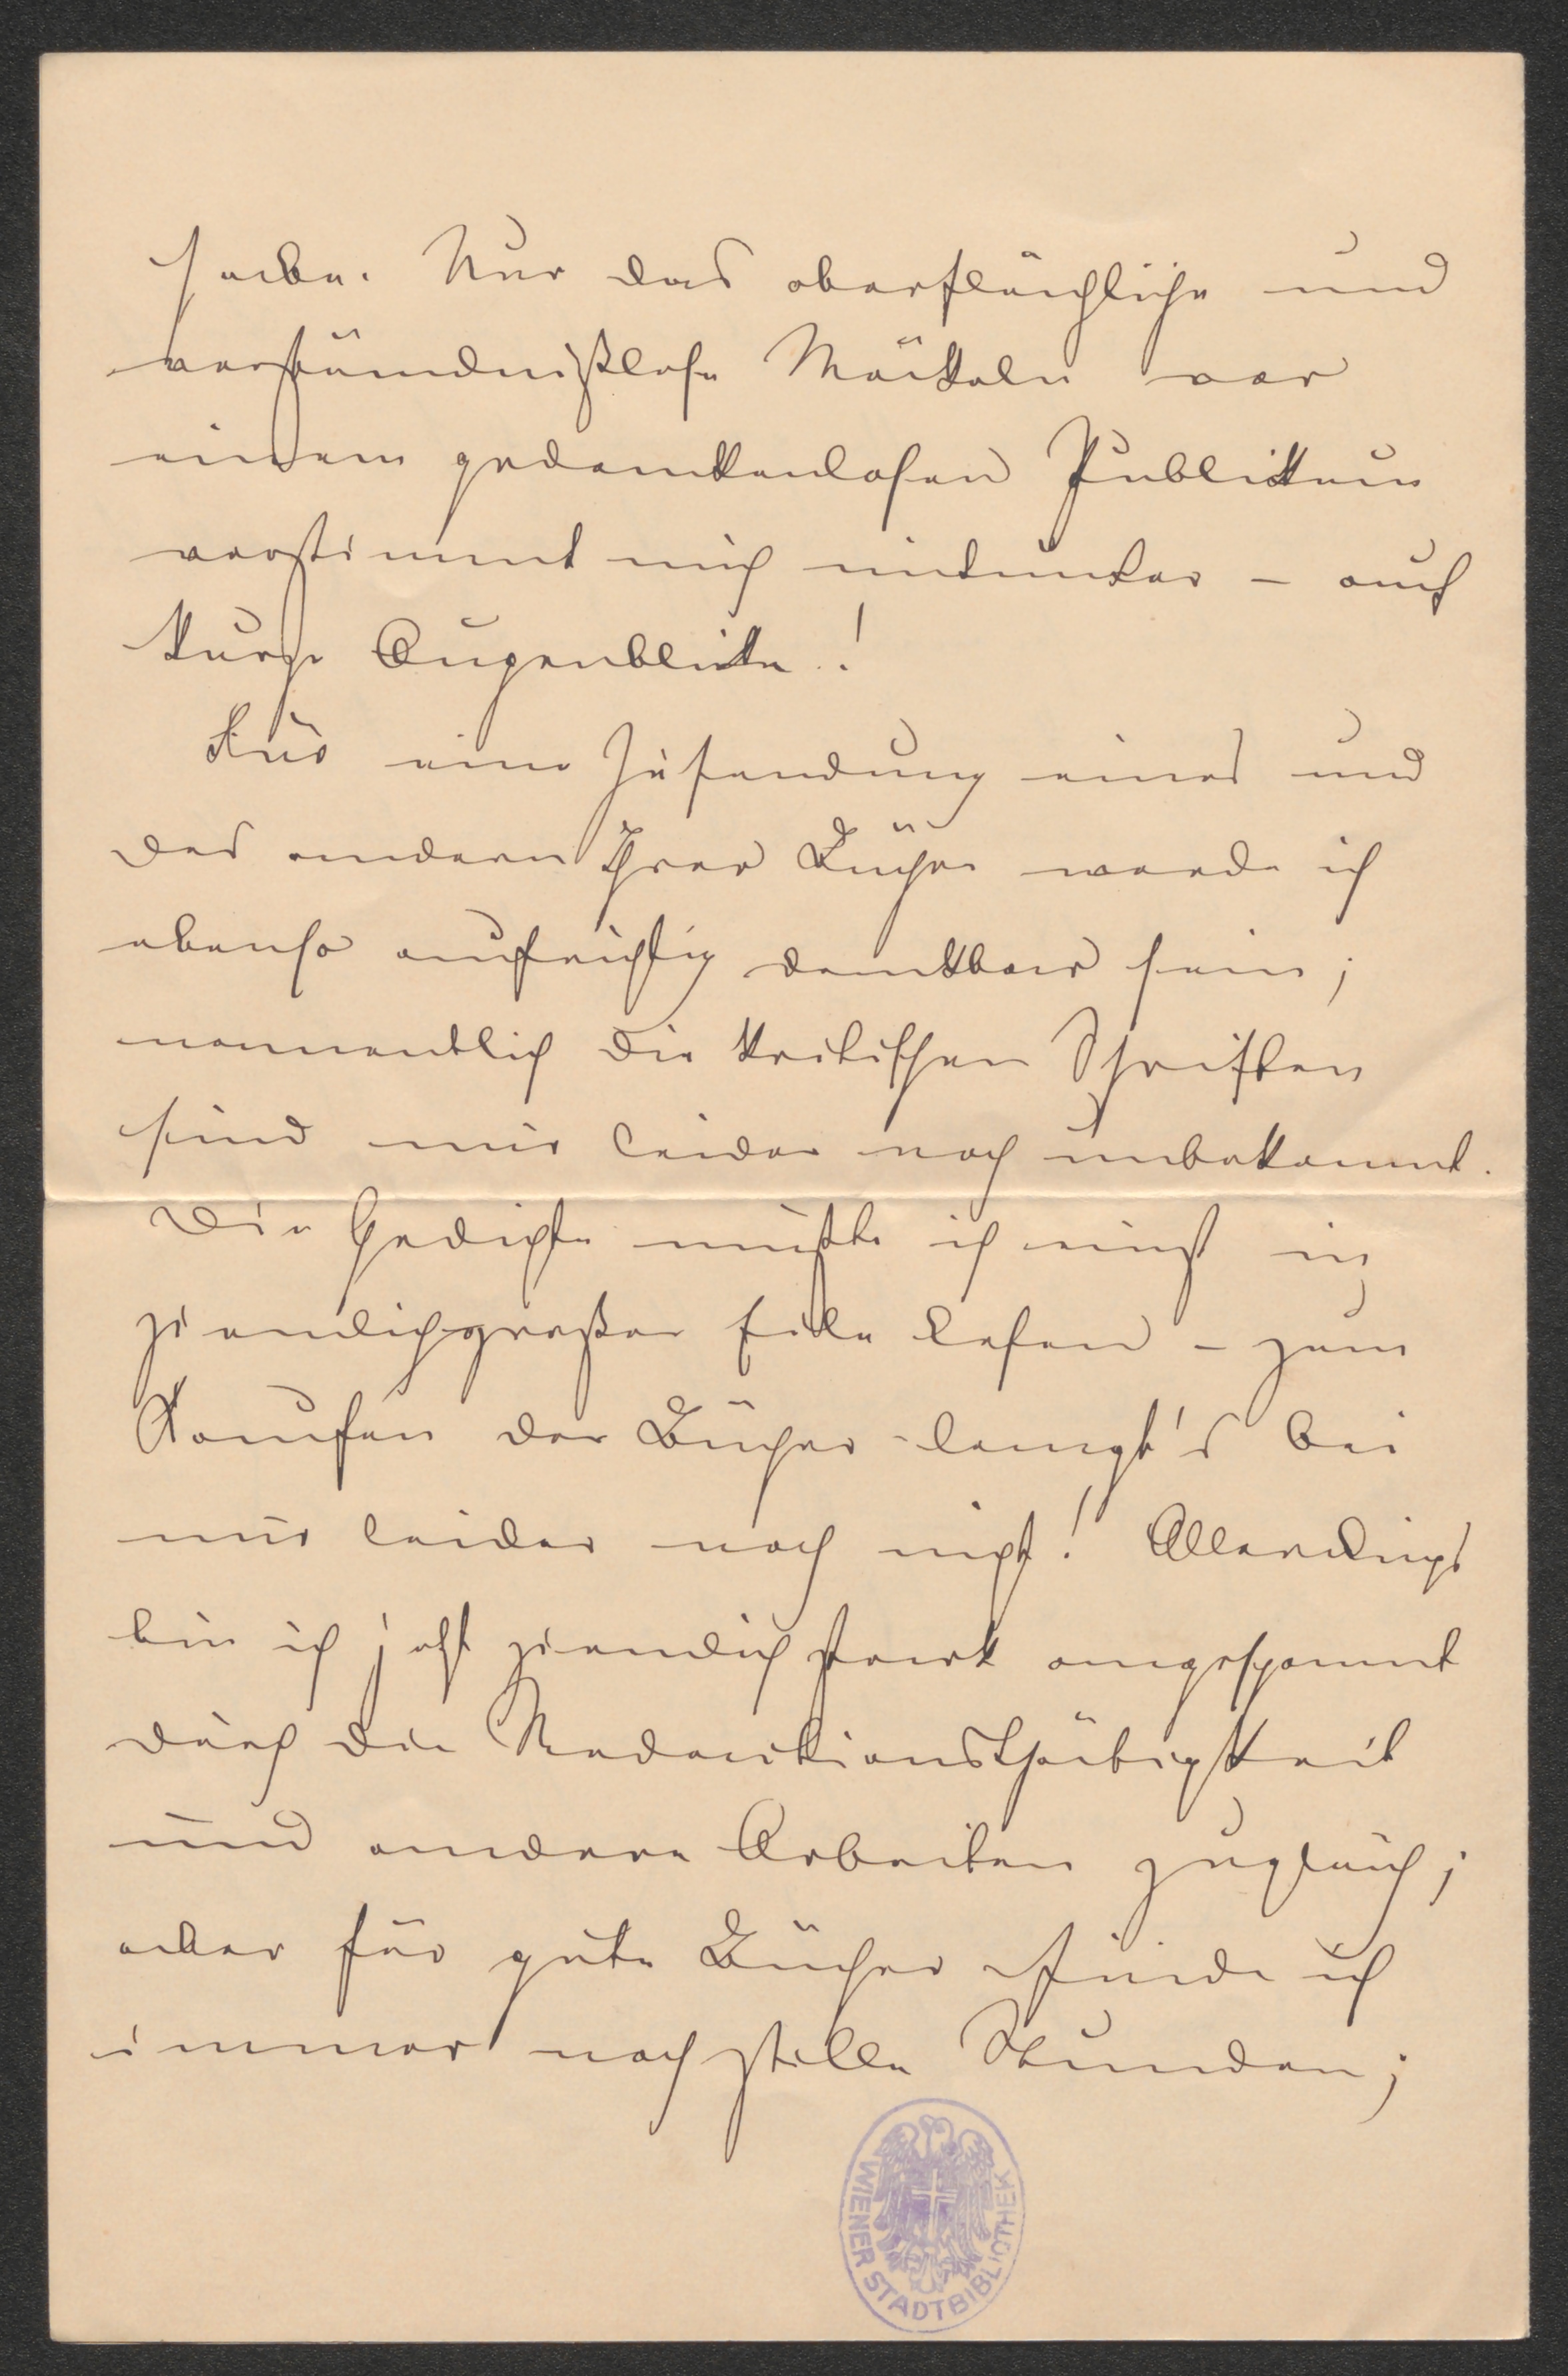 habe. Nur das oberflächliche und
verständnißlose Mäkeln vor
einem gedankenlosen Publikum
verstimmt mich mitunter – auch
kurze Augenblicke!
Für eine Zusendung eines und
des andern Ihrer Bücher werde ich
ebenso aufrichtig dankbar sein;
namentlich die kritischen Schriften
sind mir leider noch unbekannt.
Die Gedichte mußte ich einst in
ziemlich großer Eile lesen – zum
Kaufen der Bücher langt's bei
mir leider noch nicht! Allerdings
bin ich jetzt ziemlich stark angespannt
durch die Redaktionsthätigkeit
und andere Arbeiten zugleich;
aber für gute Bücher finde ich
immer noch stille Stunden;
WIENER STADTBIBLIOTHEK